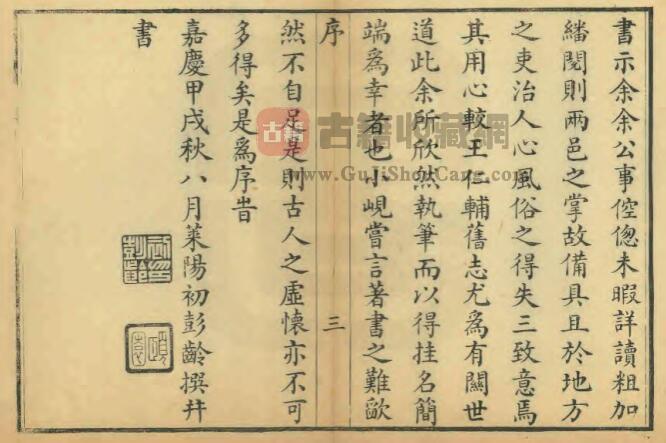 書示余余公事倥偬未暇詳讀粗加
繙閱則兩邑之掌故備具且於地方
之吏治人心風俗之得失三致意焉
其用心較王仁輔舊志尤為有關世
道此余所欣然執筆而以得挂名簡
端為幸者也小峴嘗言著書之難歐
序 三
然不自足是則古人之虛懷亦不可
多得矣是爲序旹
嘉慶甲戌秋八月萊陽初彭齡撰幷
書
古籍 古籍收藏網
www.GuJiShouCang.com